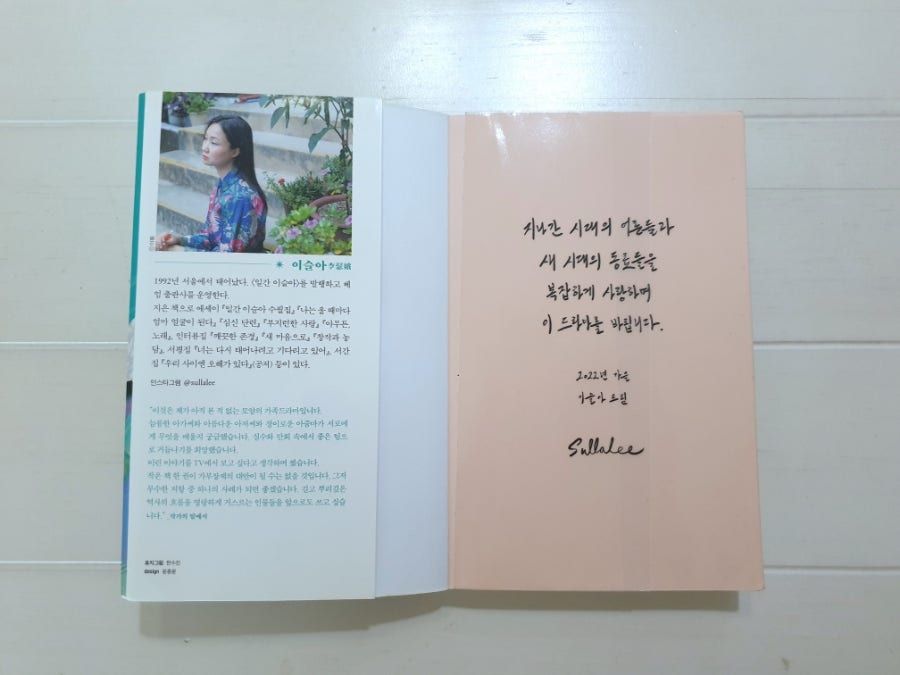 이슬아 李瑟娥
1992년 서울에서 태어났다. 〈일간 이슬아〉를 발행하고 헤
엄 출판사를 운영한다.
지은 책으로 에세이 『일간 이슬아 수필집』 『나는 울 때마다
엄마 얼굴이 된다』 『심신 단련』 『부지런한 사랑』 『아무튼,
노래』, 인터뷰집 『깨끗한 존경』 『새 마음으로』 『창작과 농
담』, 서평집 『너는 다시 태어나려고 기다리고 있어』, 서간
집 『우리 사이엔 오해가 있다』(공저) 등이 있다.
인스타그램 @sullalee
"이것은 제가 아직 본 적 없는 모양의 가족드라마입니다.
늠름한 아가씨와 아름다운 아저씨와 경이로운 아줌마가 서로에
게 무엇을 배울지 궁금했습니다. 실수와 만회 속에서 좋은 팀으
로 거듭나기를 희망했습니다.
이런 이야기를 TV에서 보고 싶다고 생각하며 썼습니다.
작은 책 한 권이 가부장제의 대안이 될 수는 없을 것입니다. 그저
무수한 저항 중 하나의 사례가 되면 좋겠습니다. 길고 뿌리깊은
역사의 흐름을 명랑하게 거스르는 인물들을 앞으로도 쓰고 싶습
니다." _작가의 말에서
표지그림 한수진
design 윤종윤
지나간 시대의 어른들과
새 시대의 동료들을
복잡하게 사랑하며
이 드라마를 바칩니다.
2022년 가을
이슬아 드림
Sullalee